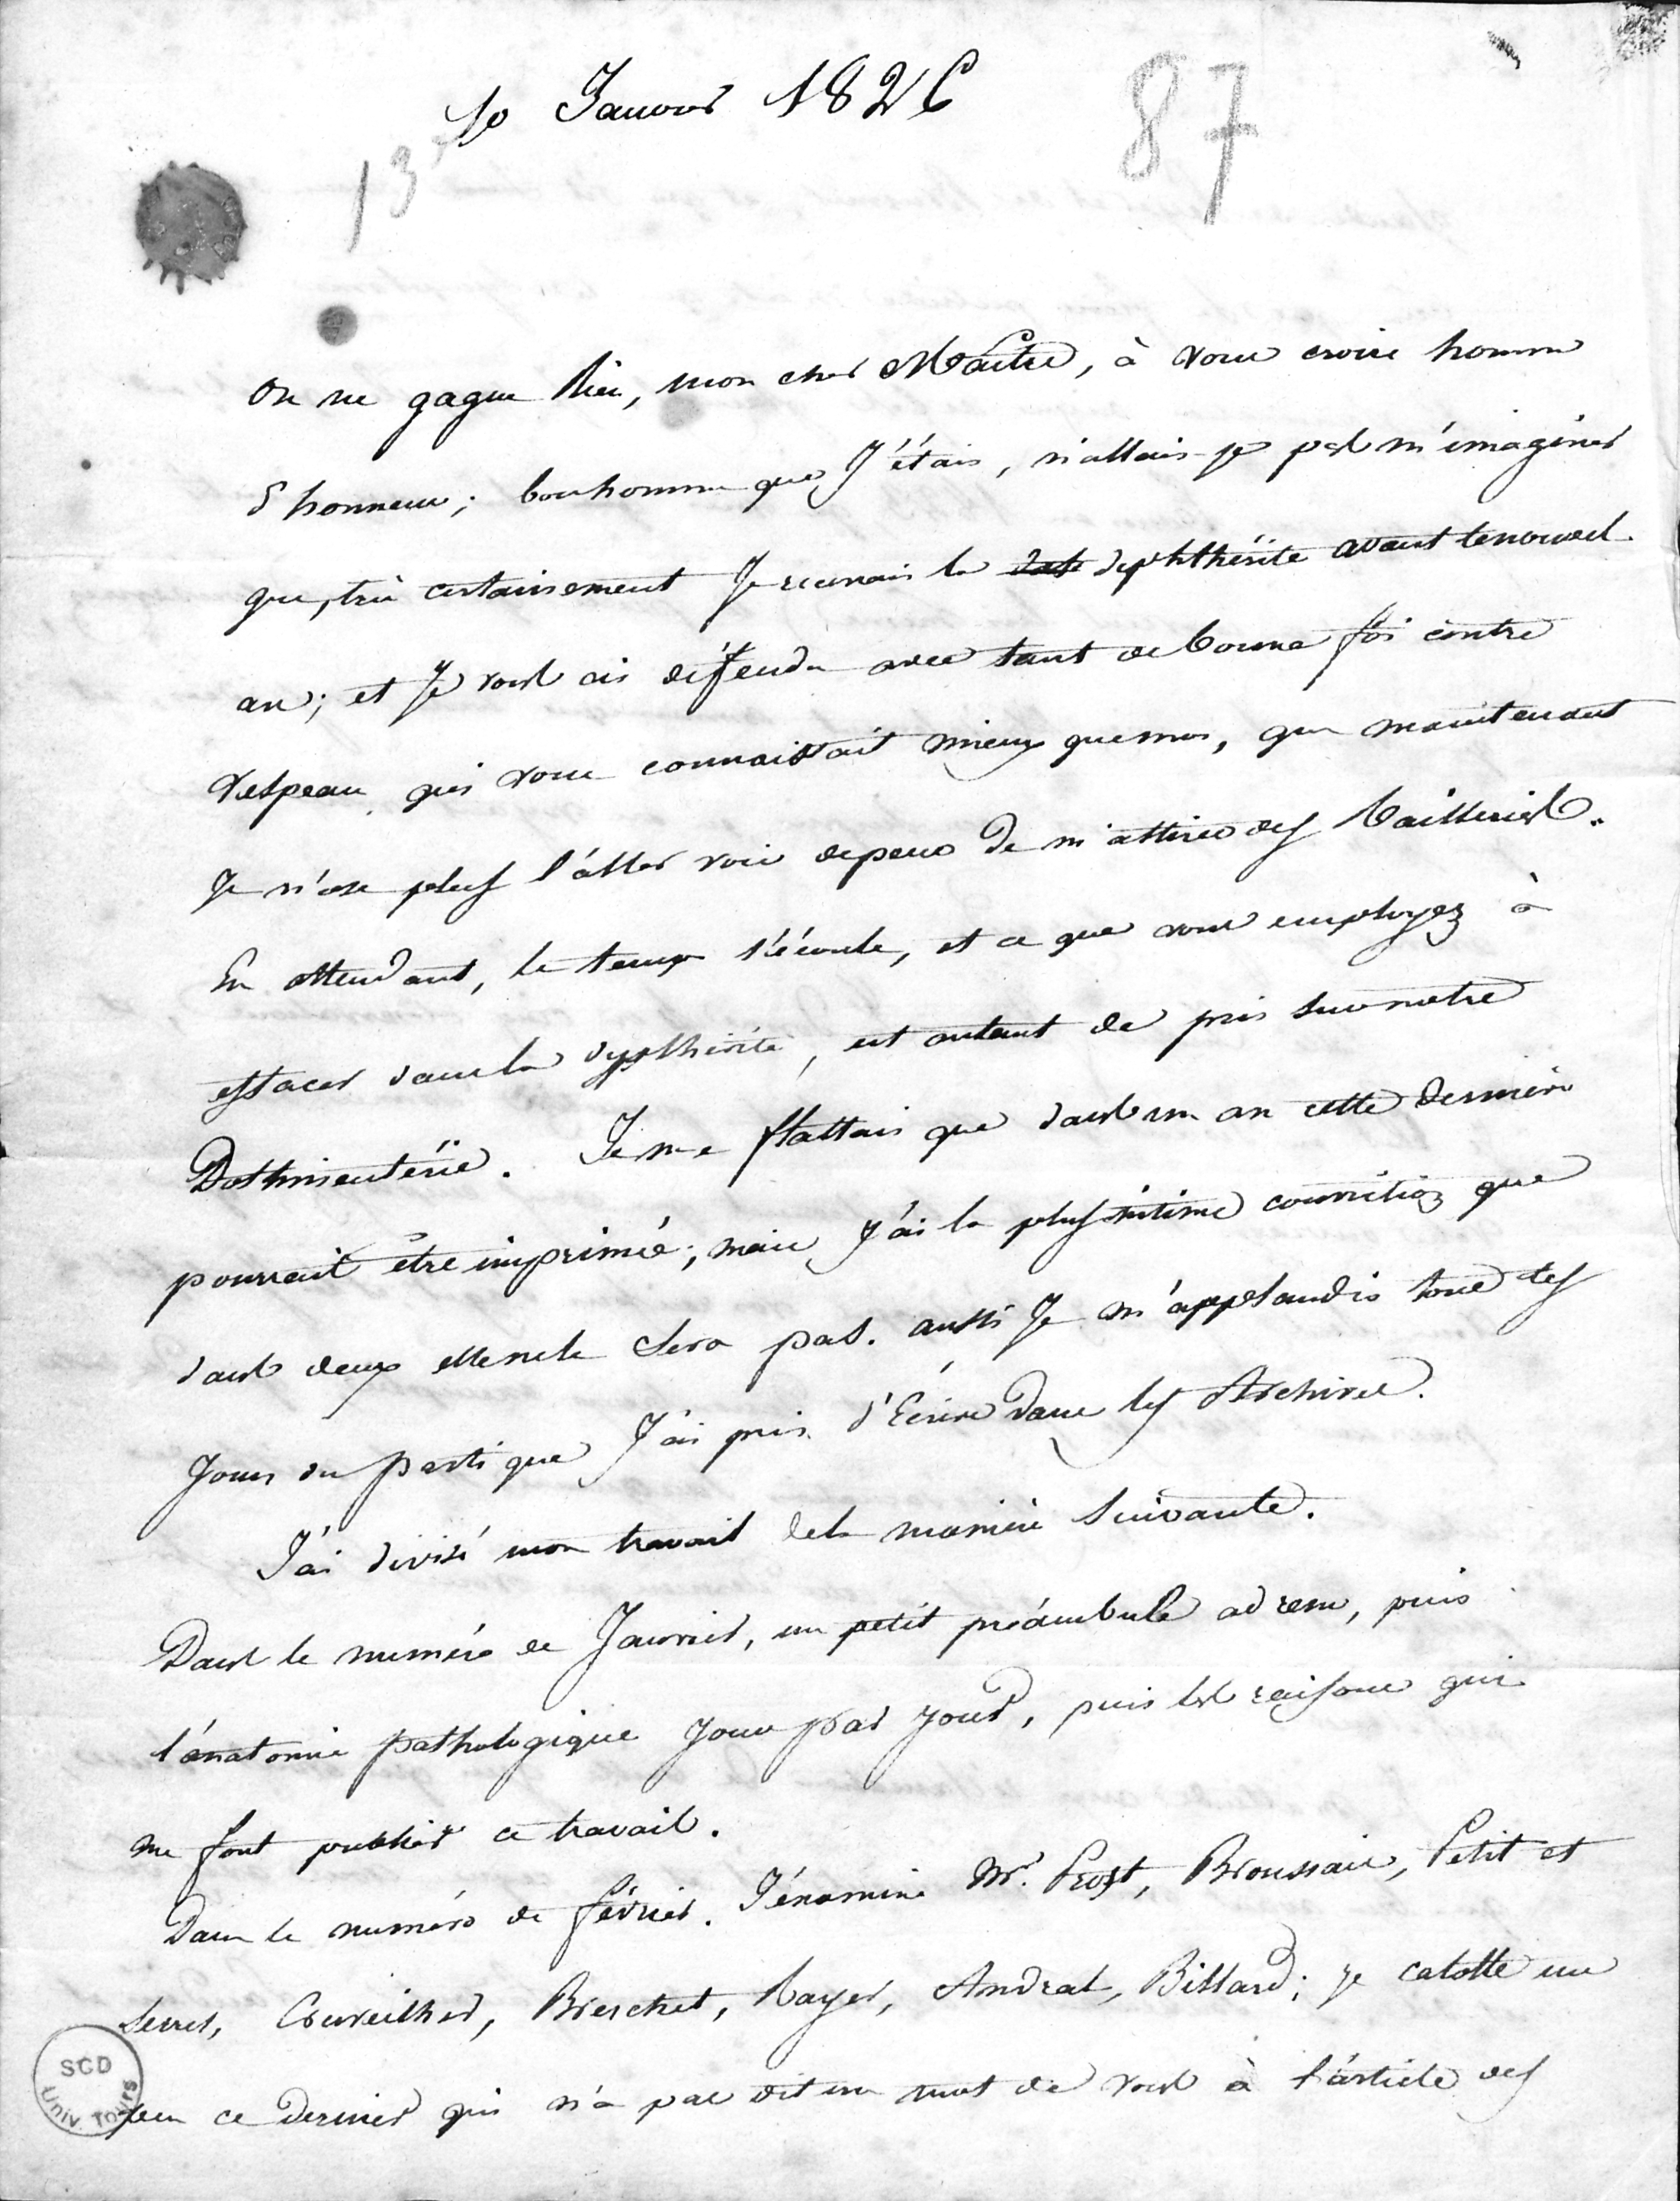 10 Janvier 1826
87
13
On ne gagne rien, mon cher Maître, à vous croire homme
d'honneur; bonhomme que J'étais, n'allais-je pas m'imaginer
que, très certainement Je recevrais la diphthérite avant le nouvel
an; et Je vous ai défendu avec tant de bonne foi contre
Velpeau qui vous connaissait mieux que moi, que maintenant
Je n'ose plus l'aller voir de peur de m'attirer des railleries.
En attendant, le temps s'écoule, et ce que vous employez à
effacer dans la dyphthérite, est autant de pris sur notre
Dothinentérie. Je me flattais que dans un an cette dernière
pourrait être imprimée; mais J'ai la plus intime conviction que
dans deux elle ne le sera pas. aussi Je m'applaudis tous les
Jours du parti que J'ai pris d'Ecrire Dans les Archives.
J'ai divisé mon travail de la manière Suivante.
Dans le numéro de Janvier, un petit préambule ad rem, puis
l'anatomie pathologique Jour par Jour, puis les raisons qui
me font publier ce travail.
Dans le numéro de février. J'examine Mr. Prost, Broussais, Petit et
Serres, Cruveilher, Breschet, Rayer, Andral, Billard; je calotte un
peu ce Dernier qui n'a pas dit un mot de vous à l'article des
SCD
Univ. Tours